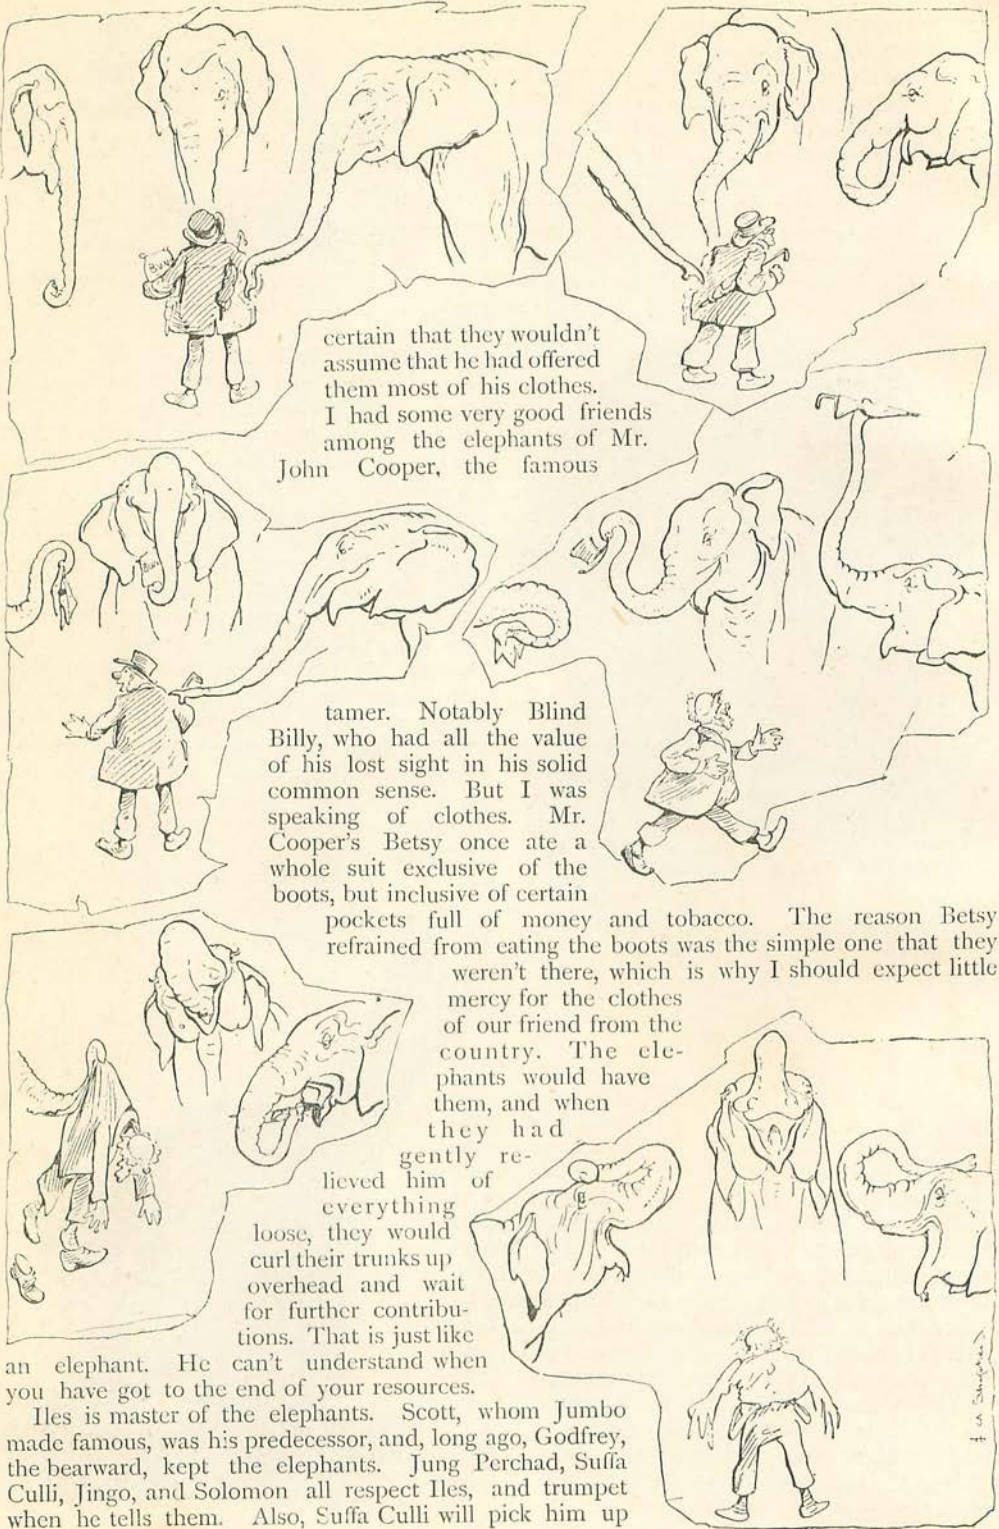 BUNS
certain that they wouldn't
assume that he had offered
them most of his clothes.
I had some very good friends
among the elephants of Mr.
John Cooper, the famous
tamer. Notably Blind
Billy, who had all the value
of his lost sight in his solid
common sense. But I was
speaking of clothes. Mr.
Cooper's Betsy once ate a
whole suit exclusive of the
boots, but inclusive of certain
pockets full of money and tobacco. The reason Betsy
refrained from eating the boots was the simple one that they
weren't there, which is why I should expect little
mercy for the clothes
of our friend from the
country. The ele-
phants would have
them, and when
they had
gently re-
lieved him of
everything
loose, they would
curl their trunks up
overhead and wait
for further contribu-
tions. That is just like
an elephant. He can't understand when
you have got to the end of your resources.
Iles is master of the elephants. Scott, whom Jumbo
made famous, was his predecessor, and, long ago, Godfrey,
the bearward, kept the elephants. Jung Perchad, Suffa
Culli, Jingo, and Solomon all respect Iles, and trumpet
when he tells them. Also, Suffa Culli will pick him up